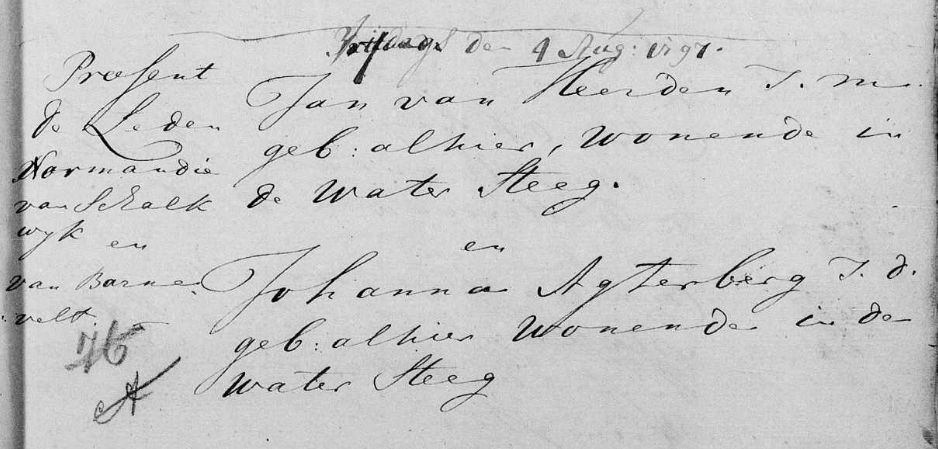 Vrijdags den 4 Aug: 1797.
Præsent
de Leden
Normandie
van Schalk
wyk en
van Barne
velt.
Jan van Heerden J. m.
geb: alhier, wonende in
de Water Steeg.
en
Johanna Agterberg J. d.
geb: alhier wonende in de
water Steeg